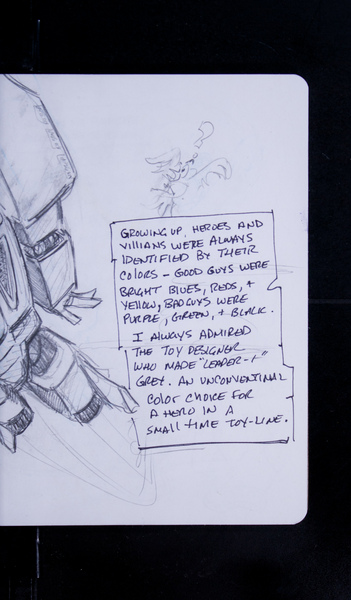 ?
GROWING UP, HEROES AND
VILLIANS WERE ALWAYS
IDENTIFIED BY THEIR
COLORS - GOOD GUYS WERE
BRIGHT BLUES, REDS, +
YELLOW, BAD GUYS WERE
PURPLE, GREEN, + BLACK.
I ALWAYS ADMIRED
THE TOY DESIGNER
WHO MADE "LEADER-1"
GREY. AN UNCONVENTINAL
COLOR CHOICE FOR
A HERO IN A
SMALL-TIME TOY-LINE.